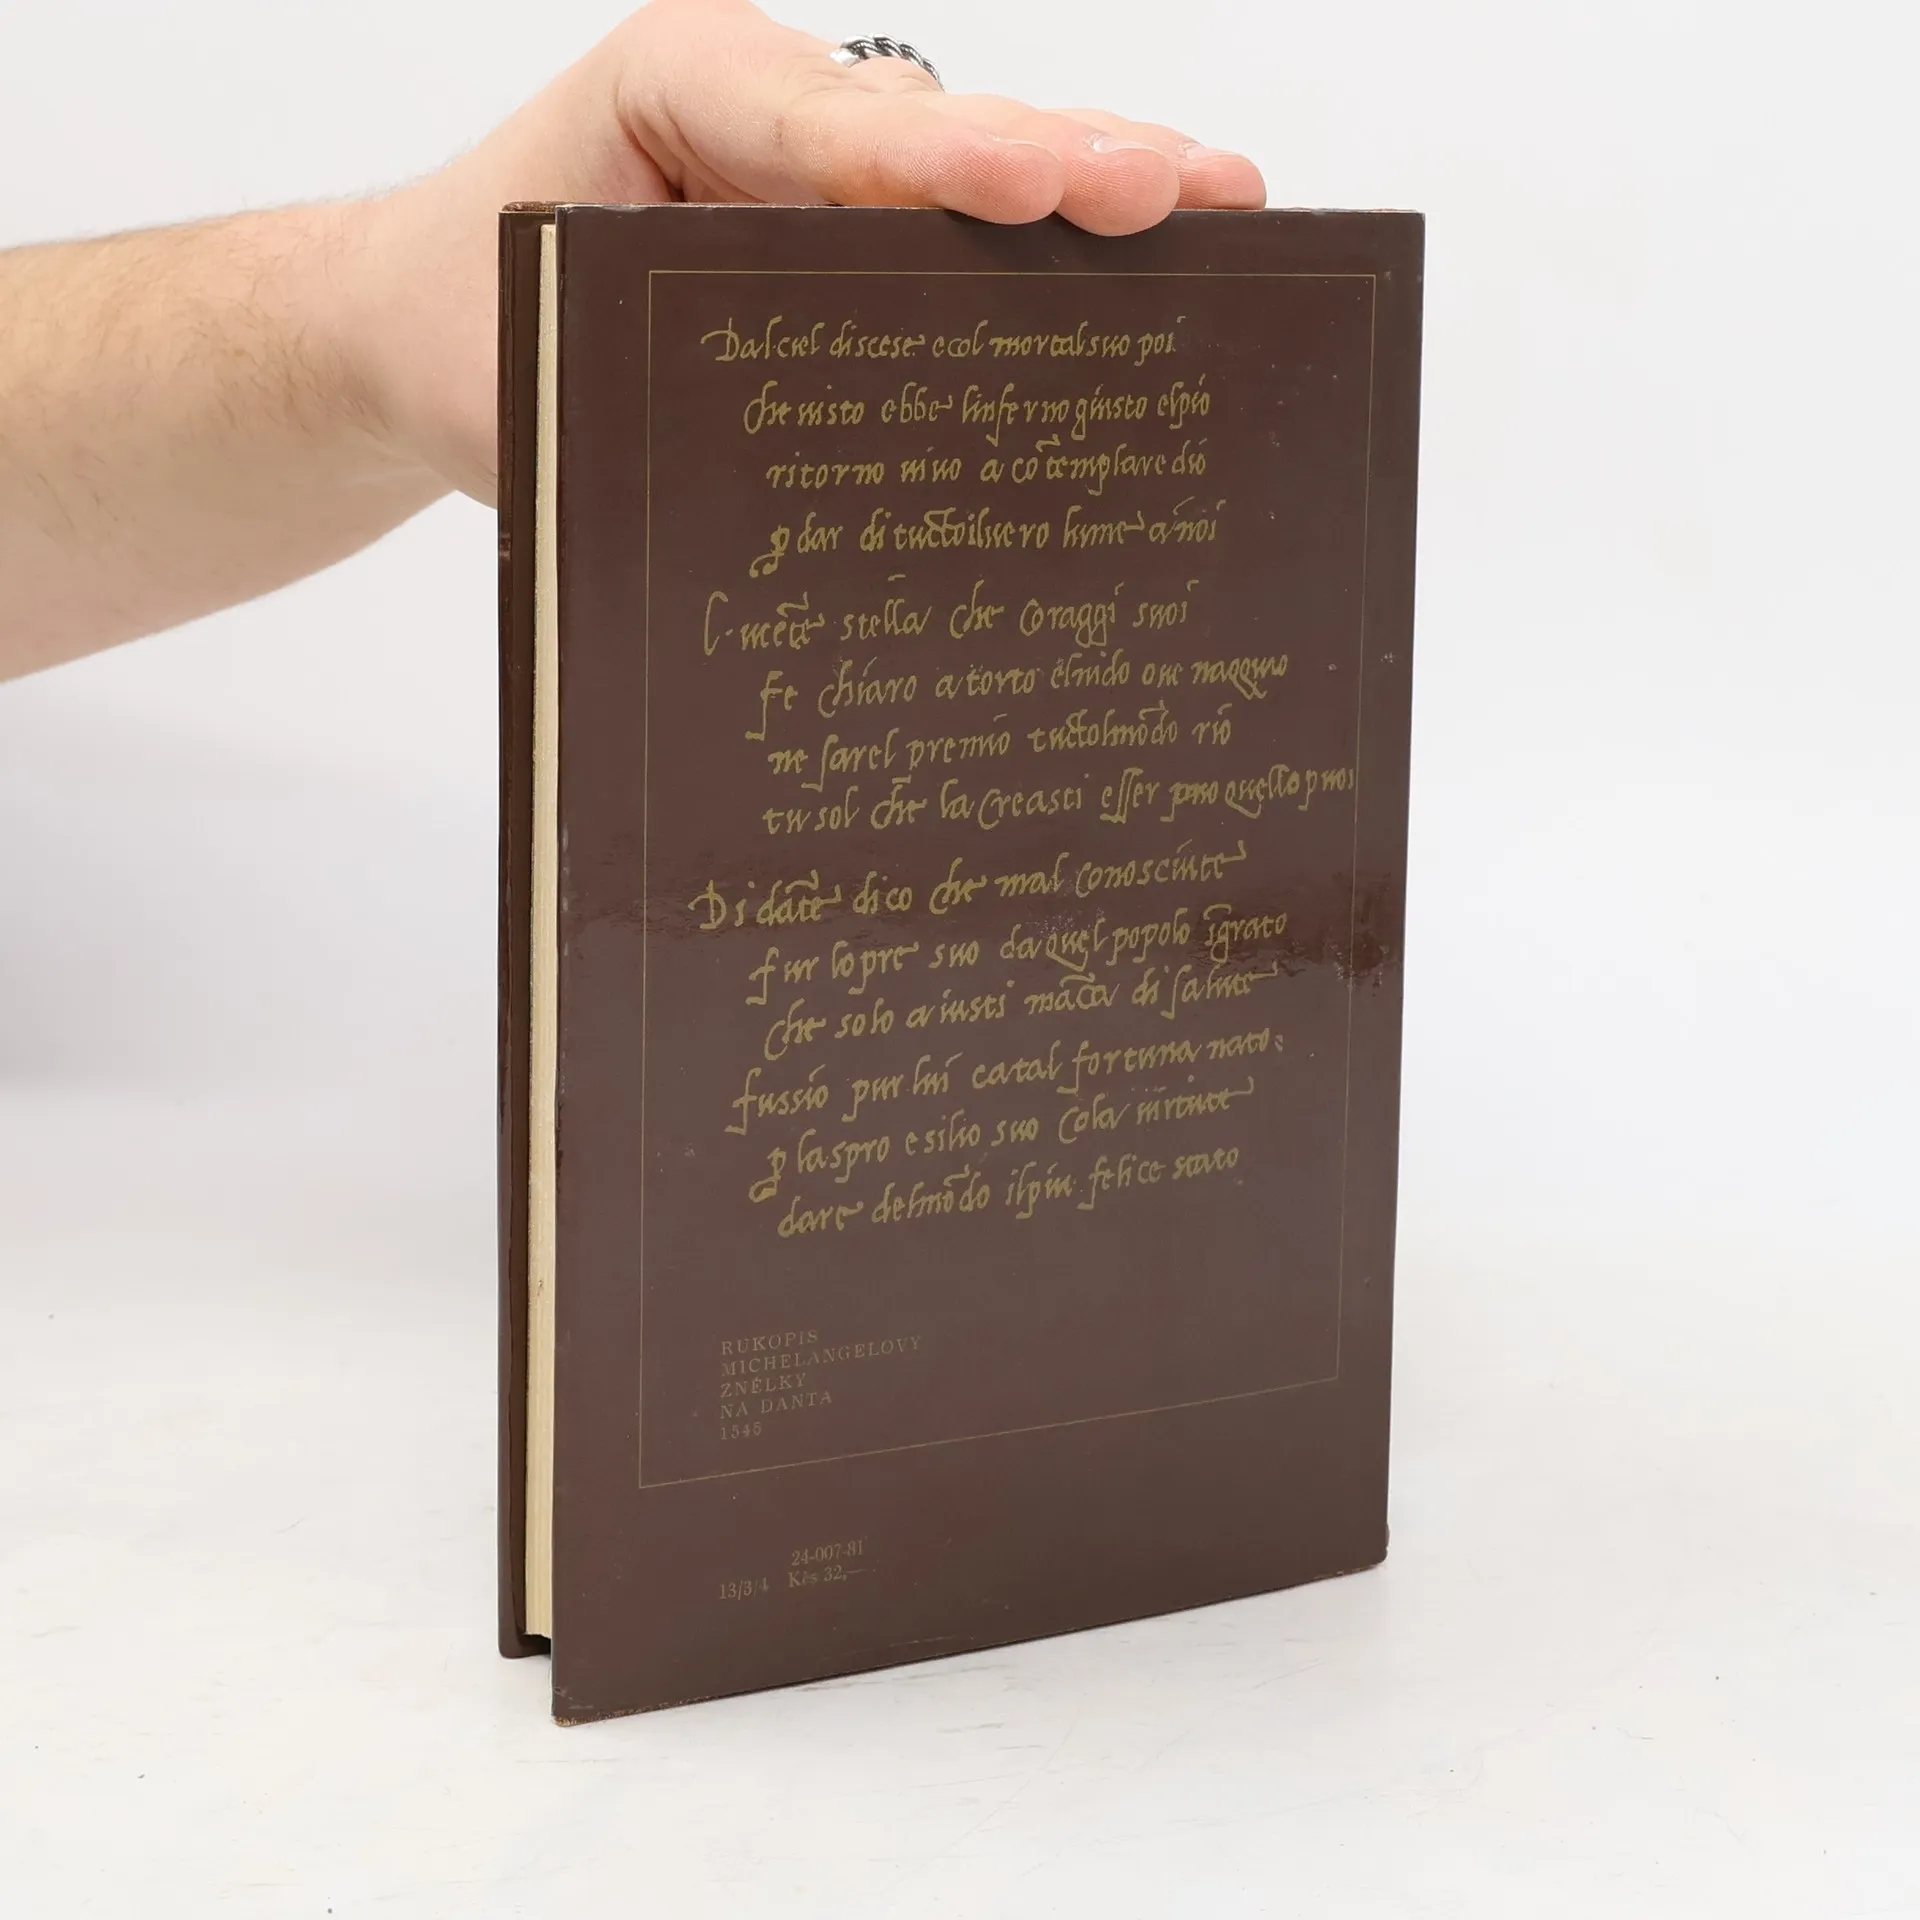 Dal ciel discese e col mortal suo poi
che uisto ebbe linferno giusto elpio
ritorno uiuo a cōtemplare dio
p̱ dar di tucto iluero lume a noi
Lucēte stella che co raggi suoi
fe chiaro a torto elnido oue nacquio
ne sarel premio tucto lmōdo rio
tu sol che la creasti esser puo quello p uoi
Di dāte dico che mal conosciute
fur lopre suo da quel popolo īgrato
che solo a iusti māca di salute
fussio pur lui ca tal fortuna nato:
p̱ laspro esilio suo co la uirtute
dare delmōdo ilpiu felice stato
RUKOPIS
MICHELANGELOVY
ZNĚLKY
NA DANTA
1545
24-007-81
13/3/4 Kčs 32,—